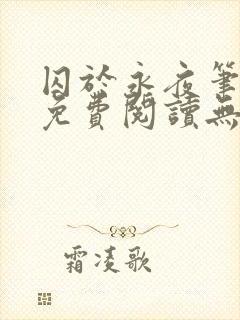 囚於永夜筆
免費閱讀無
霜凌歌